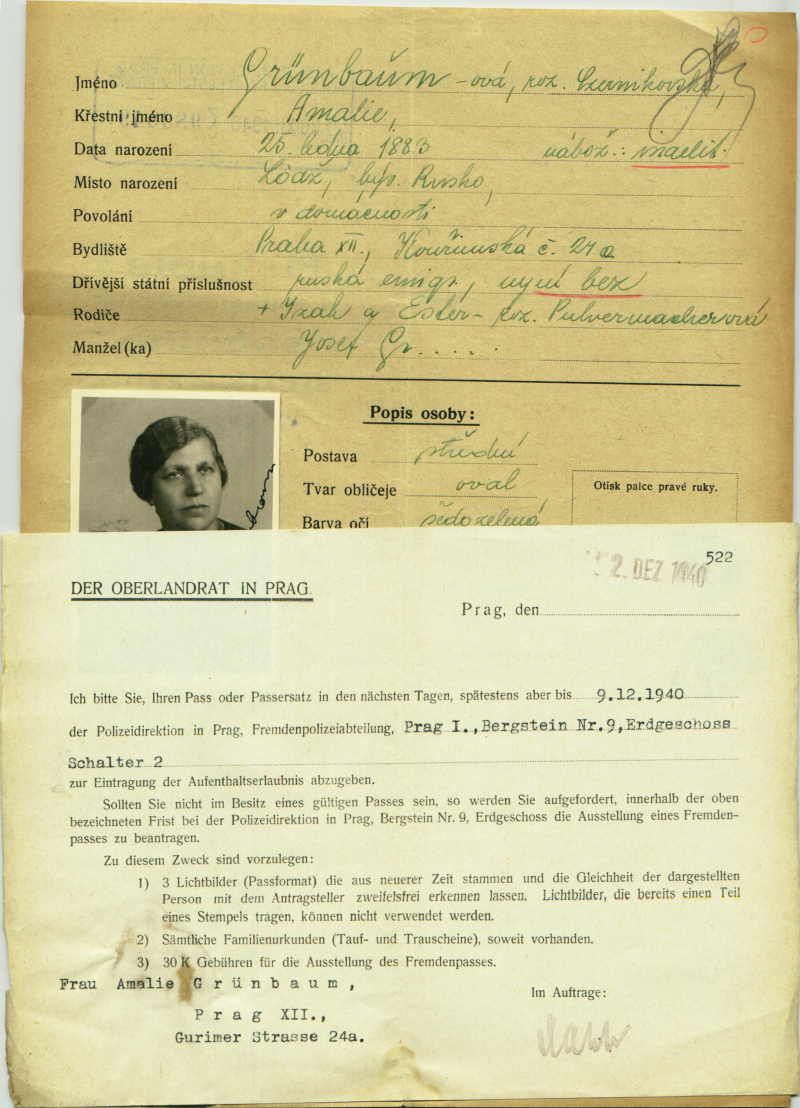 Jméno Grünbaum-ová, roz. Czernikovská,
Křestní jméno Amalie,
Data narození 25. ledna 1883 nábož.: israelit.
Místo narození Lódž, býv. Rusko,
Povolání v domácnosti
Bydliště Praha XII., Kouřimská č. 24a
Dřívější státní příslušnost ruská emigr, nyní bez
Rodiče + Izak a Ester - roz. Pulvermacherová
Manžel (ka) Josef Gr. . . . .
Popis osoby:
Postava střední
Tvar obličeje oval
Otisk palce pravé ruky.
Barva očí šedozelená
522
2. DEZ 1940
DER OBERLANDRAT IN PRAG.
Prag, den
Ich bitte Sie, Ihren Pass oder Passersatz in den nächsten Tagen, spätestens aber bis 9.12.1940
der Polizeidirektion in Prag, Fremdenpolizeiabteilung, Prag I.,Bergstein Nr.9,Erdgeschoss
Schalter 2
zur Eintragung der Aufenthaltserlaubnis abzugeben.
Sollten Sie nicht im Besitz eines gültigen Passes sein, so werden Sie aufgefordert, innerhalb der oben
bezeichneten Frist bei der Polizeidirektion in Prag, Bergstein Nr. 9, Erdgeschoss die Ausstellung eines Fremden-
passes zu beantragen.
Zu diesem Zweck sind vorzulegen:
1) 3 Lichtbilder (Passformat) die aus neuerer Zeit stammen und die Gleichheit der dargestellten
Person mit dem Antragsteller zweifelsfrei erkennen lassen. Lichtbilder, die bereits einen Teil
eines Stempels tragen, können nicht verwendet werden.
2) Sämtliche Familienurkunden (Tauf- und Trauscheine), soweit vorhanden.
3) 30 K Gebühren für die Ausstellung des Fremdenpasses.
Frau Amalie Grünbaum,
Im Auftrage:
Prag XII.,
Gurimer Strasse 24a.